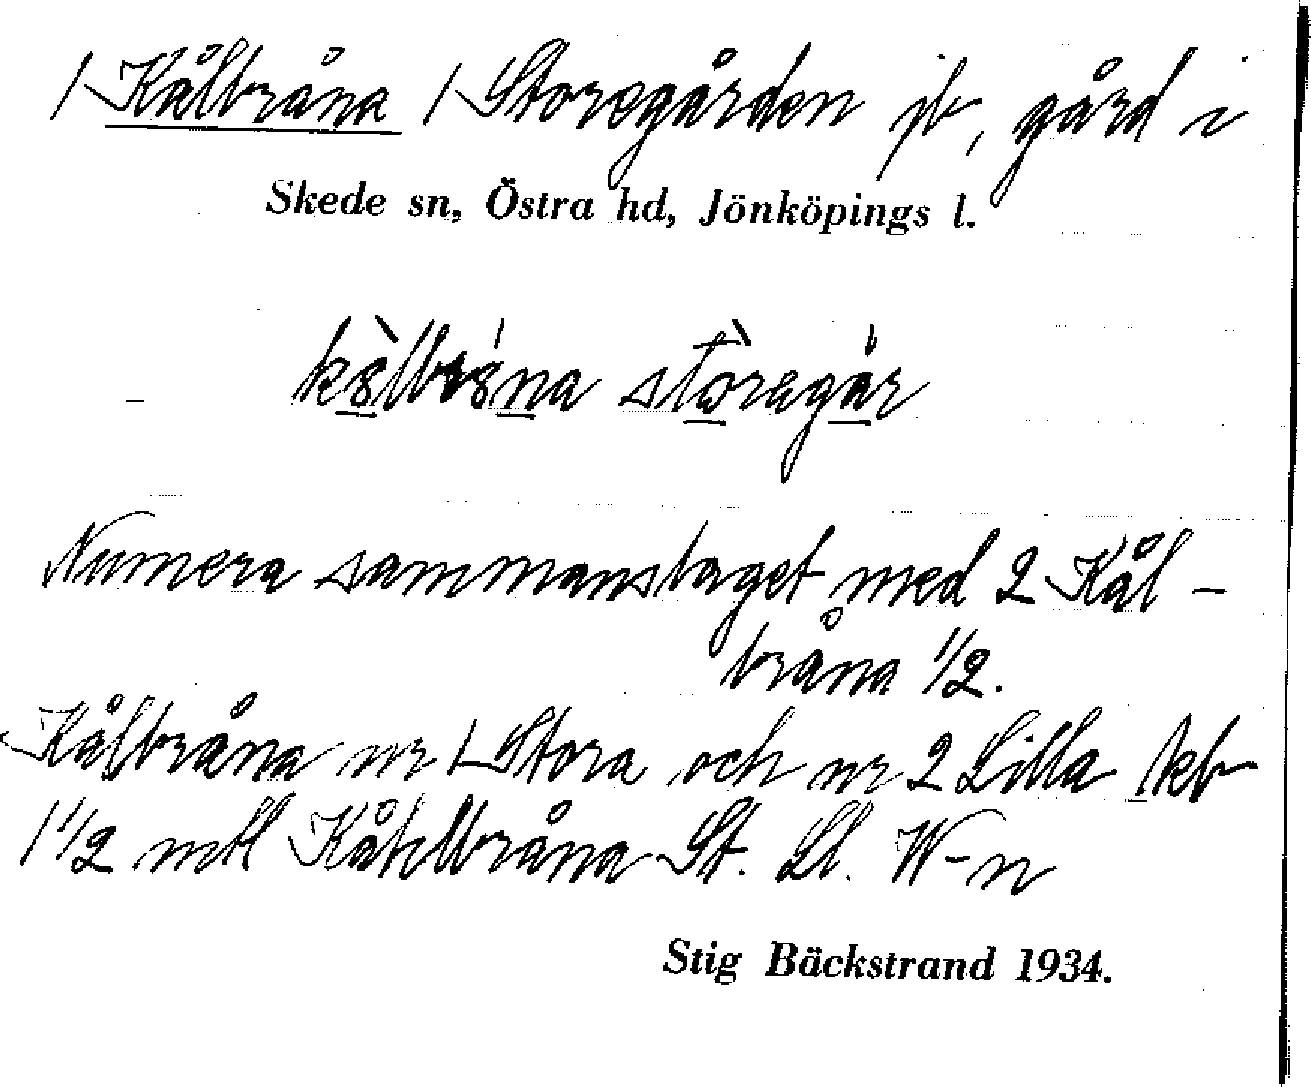 1 Kålbråna 1 Storegården jb, gård i
Skede sn, Östra hd, Jönköpings l.
storegår
Numera sammanslaget med 2 Kål-
bråna 1/2.
Kålbråna nr 1 Stora och nr 2 Lilla
1 1/2 mtl Kåhlbråna St. Ll. W-n
Stig Bäckstrand 1934.